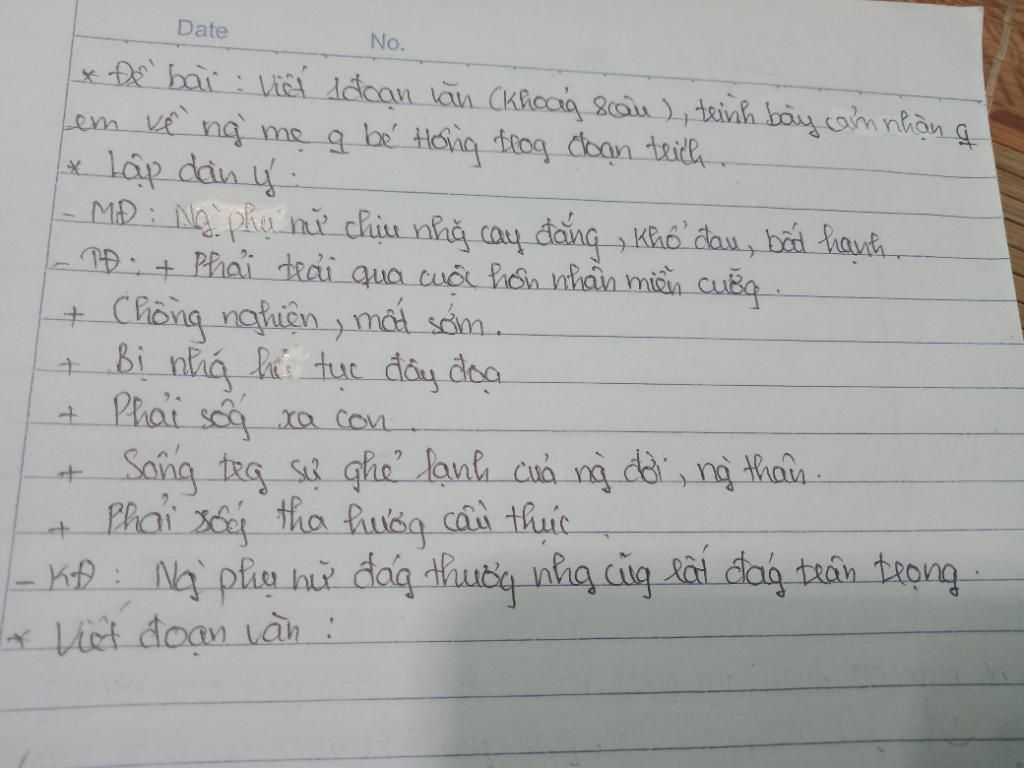 Date No.
* Đề bài : Viết 1 đoạn văn (khoảg 8 câu), trình bày cảm nhận q
em về ng` mẹ q bé Hồng trog đoạn trích.
* Lập dàn ý :
- MĐ : Ng` phụ nữ chịu nhữg cay đắng, khổ đau, bất hạnh.
- TĐ : + Phải trải qua cuộc hôn nhân miễn cưỡg.
+ Chồng nghiện, mất sớm.
+ Bị nhữg hủ tục đầy đoạ
+ Phải sốg xa con.
+ Sống trg sự ghẻ lạnh của ng` đời, ng` thân.
+ Phải sốg tha hươg cầu thực.
- KĐ : Ng` phụ nữ đág thươg nhg cũg rất đág trân trọng.
* Viết đoạn văn :